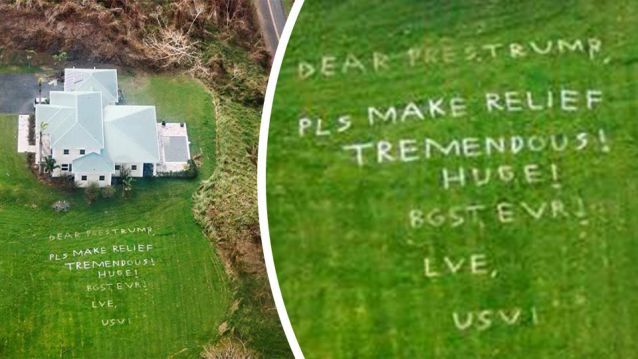 DEAR PRESTRUMP,
PLS MAKE RELIEF
TREMENDOUS!
HUGE!
BGST EVR!
LVE,
USVI
DEAR PRESTRUMP,
PLS MAKE RELIEF
TREMENDOUS!
HUGE!
BGST EVR!
LVE,
USVI